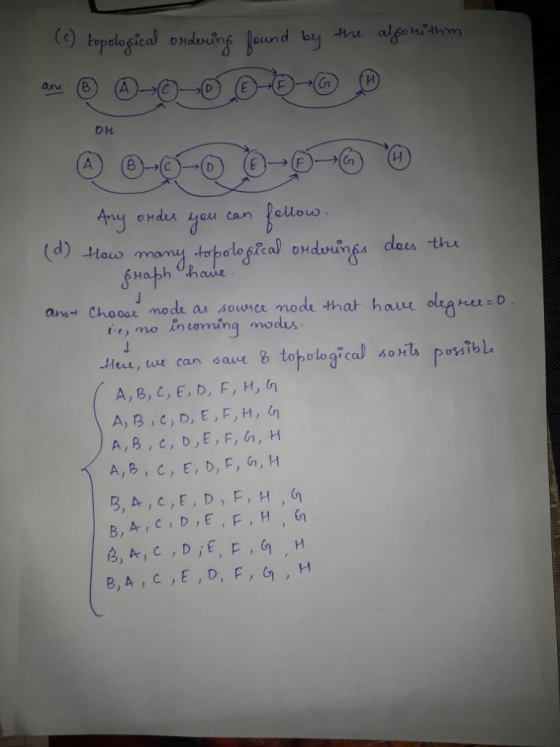 (c) topological ordering found by the algorithm
ans. B A → C → D E → F → G H
OR
A B → C → D E → F → G H
Any order you can follow.
(d) How many topological orderings does the
graph have.
ans→ Choose node as source node that have degree = 0.
i.e, no incoming nodes.
Here, we can save 8 topological sorts possible
A, B, C, E, D, F, H, G
A, B, C, D, E, F, H, G
A, B, C, D, E, F, G, H
A, B, C, E, D, F, G, H
B, A, C, E, D, F, H, G
B, A, C, D, E, F, H, G
B, A, C, D, E, F, G, H
B, A, C, E, D, F, G, H